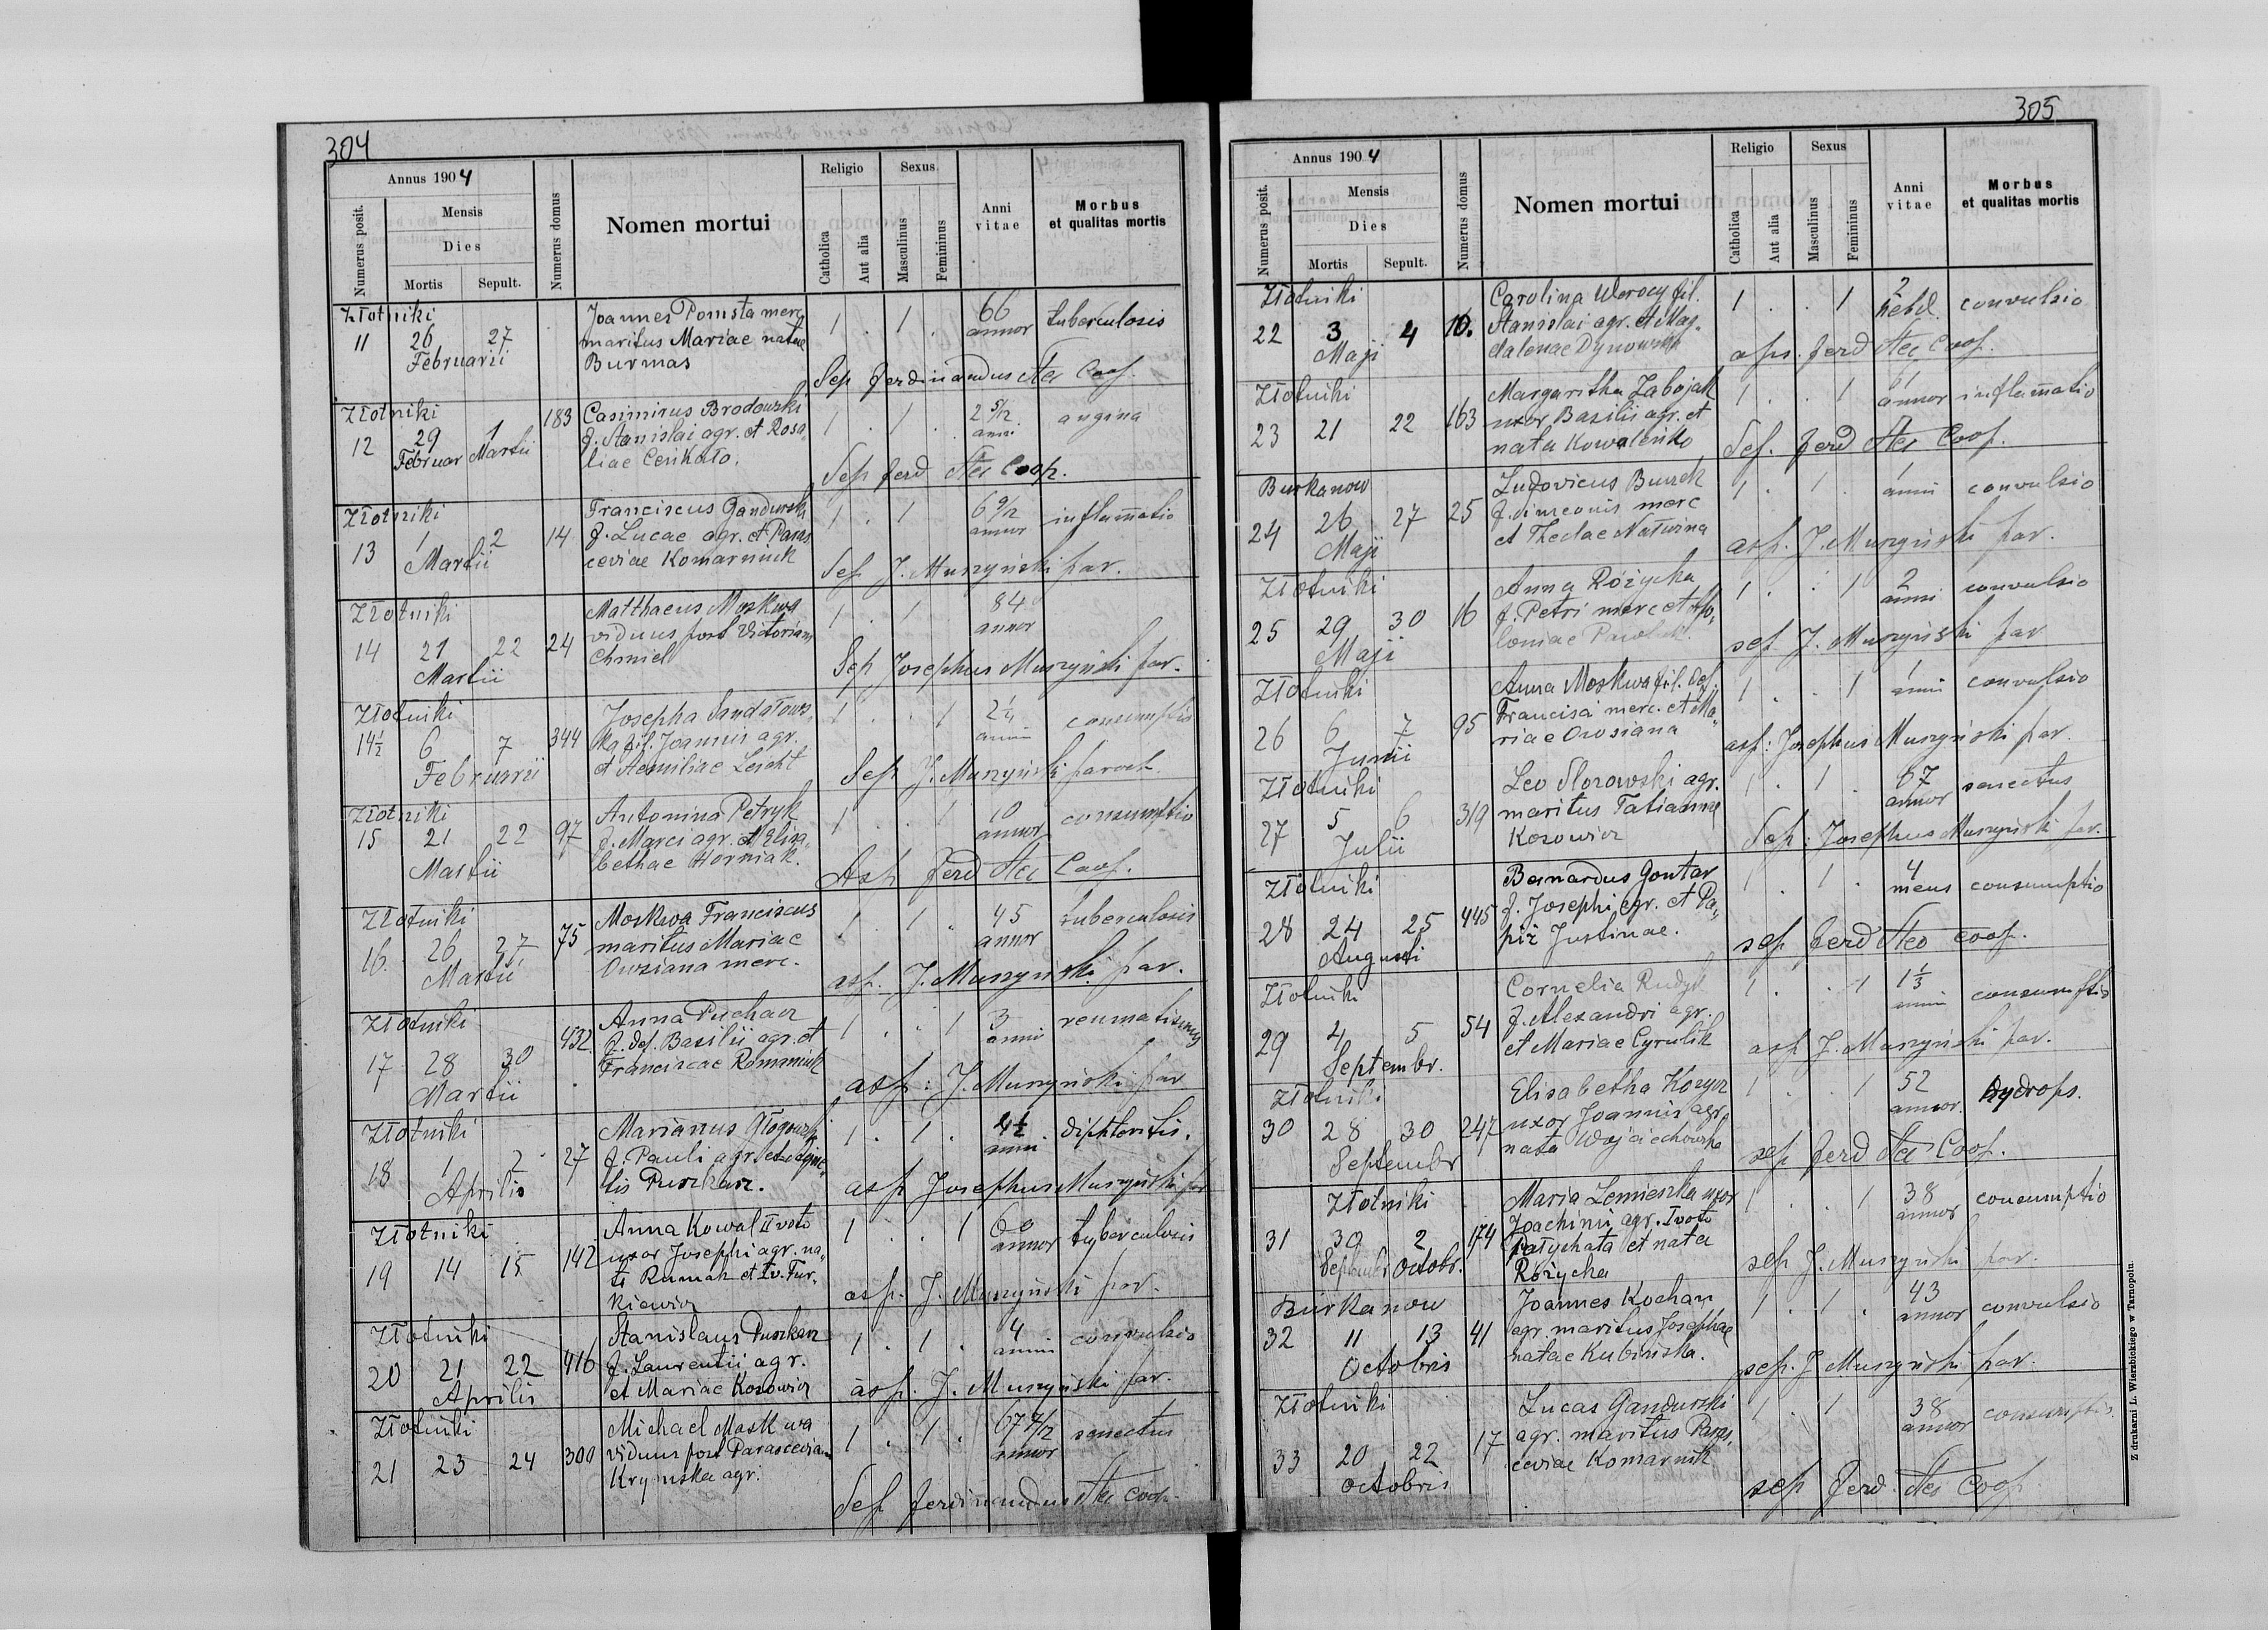 304
Annus 1904
Numerus posit.
Mensis
Dies
Mortis
Sepult.
Numerus domus
Nomen mortui
Religio
Catholica
Aut alia
Sexus
Masculinus
Femininus
Anni vitae
Morbus et qualitas mortis
Złotniki
11 26 27 Februarii
Joannes Pomsta merc
maritus Mariae natae
Burmas
1 . 1 . 66 annor tuberculosis
Sep Ferdinandus Coop.
Złotniki
12 29 Februar 1 Martii 183
Casimirus Brodowski
f. Stanislai agr. et Rosa-
liae
1 . 1 . 2 5/12 anni angina
Sep Ferd Coop.
Złotniki
13 1 2 Martii 14
Franciscus Gandurski
f. Lucae agr. et Paras
ceviae Komarniuk
1 . 1 . 6 9/12 annor inflammatio
Sep J. Muszyński par.
Złotniki
14 21 22 Martii 24
Matthaeus Moskwa
viduus post Victoriam
Chmiel
1 . 1 . 84 annor
Sep Josephus Muszyński par.
Złotniki
14½ 6 7 Februarii 344
Josepha Sandałows
ka fil. Joannis agr.
et Aemiliae Leicht
1 . . 1 2¼ anni consumptio
Sep J. Muszyński paroch
Złotniki
15 21 22 Martii 97
Antonina Petryk
f. Marci agr. et Elisa-
bethae Horniak.
1 . . 1 10 annor consumptio
Asp Ferd Coop.
Złotniki
16. 26 27 Martii 75
Moskwa Franciscus
maritus Mariae
Owsiana merc.
1 . 1 . 45 annor tuberculosis
asp. J. Muszyński par.
Złotniki
17 28 30 Martii 432
Anna
f. def. Basilii agr. et
Franciscae Romaniuk
1 . . 1 3 anni reumatismus
asp: J. Muszyński par
Złotniki
18 1 2 Aprilis 27
Marianus Głogowski
f. Pauli agr. et Agne-
tis Puszkarz.
1 . 1 . 4½ anni diphteritis.
asp Josephus Muszyński par
Złotniki
19 14 15 142
Anna Kowal II voto
uxor Josephi agr. na-
ta et Iv. Tur-
kiewicz
1 . . 1 60 annor tuberculosis
asp. J. Muszyński par.
Złotniki
20 21 22 Aprilis 416
Stanislaus Puszkarz
f. Laurentii agr.
et Mariae Kosowicz
1 . 1 . 4 anni convulsio
asp. J. Muszyński par.
Złotniki
21 23 24 300
Michael Moskwa
viduus post Parasceviam
Krymska agr.
1 . 1 . 67 4/12 annor senectus
Sep Ferdinandus Coop.
305
Annus 1904
Numerus posit.
Mensis
Dies
Mortis
Sepult.
Numerus domus
Nomen mortui
Religio
Catholica
Aut alia
Sexus
Masculinus
Femininus
Anni vitae
Morbus et qualitas mortis
Złotniki
22 3 4 Maji 10.
Carolina fil.
Stanislai agr. et Mag-
dalenae Dynowska
1 . . 1 2 hebd. convulsio
asp. Ferd Coop.
Złotniki
23 21 22 163
Margaritha Zabojak
uxor Basilii agr. et
nata Kowaleńko
1 . . 1 annor inflammatio
Sep. Ferd Coop.
Burkanow
24 26 27 Maji 25
Ludovicus Burek
f. Simeonis merc
et Theclae
1 . 1 . 1 anni convulsio
asp. J. Muszyński par.
Złotniki
25 29 30 Maji 16
Anna Różycka
f. Petri merc et Apo-
loniae
1 . . 1 2 anni convulsio
sep J. Muszyński par
Złotniki
26 6 7 Junii 95
Anna Moskwa fil. def.
Francisci merc. et Ma-
riae Owsiana
1 . . 1 1 anni convulsio
asp: Josephus Muszyński par.
Złotniki
27 5 6 Julii 319
Leo agr.
maritus Tatianna
Kosowicz
1 . 1 . 67 annor senectus
Sep: Josephus Muszyński par.
Złotniki
28 24 25 Augusti 445
Bernardus Gontar
f. Josephi agr. et Pa-
piż Justinae.
1 . 1 . 4 mens consumptio
sep Ferd coop.
Złotniki
29 4 5 Septembr. 54
Cornelia Rudyk
f. Alexandri agr.
et Mariae Cyrulik
1 . . 1 1⅓ anni consumptio
asp J. Muszyński par.
Złotniki
30 28 30 Septembr 247
Elisabetha Kozyra
uxor Joannis agr.
nata Wojciechowska
1 . . 1 52 annor. hydrops.
sep Ferd Coop.
Złotniki
31 30 September 2 Octobr. 174
Maria Lemieszka uxor
Joachimi agr. I voto
Pałychata et nata
Różycka
1 . . 1 38 annor consumptio
sep J. Muszyński par.
Burkanow
32 11 13 Octobris 41
Joannes Kochan
agr. maritus Josephae
natae Kubińska.
1 . 1 . 43 annor convulsio
sep. J. Muszyński par.
Złotniki
33 20 22 Octobris 17
Lucas Gandurski
agr. maritus Paras-
ceviae Komarnik
1 . 1 38 annor consumptio
sep Ferd. Coop
Z drukarni L. Wierzbickiego w Tarnopolu.